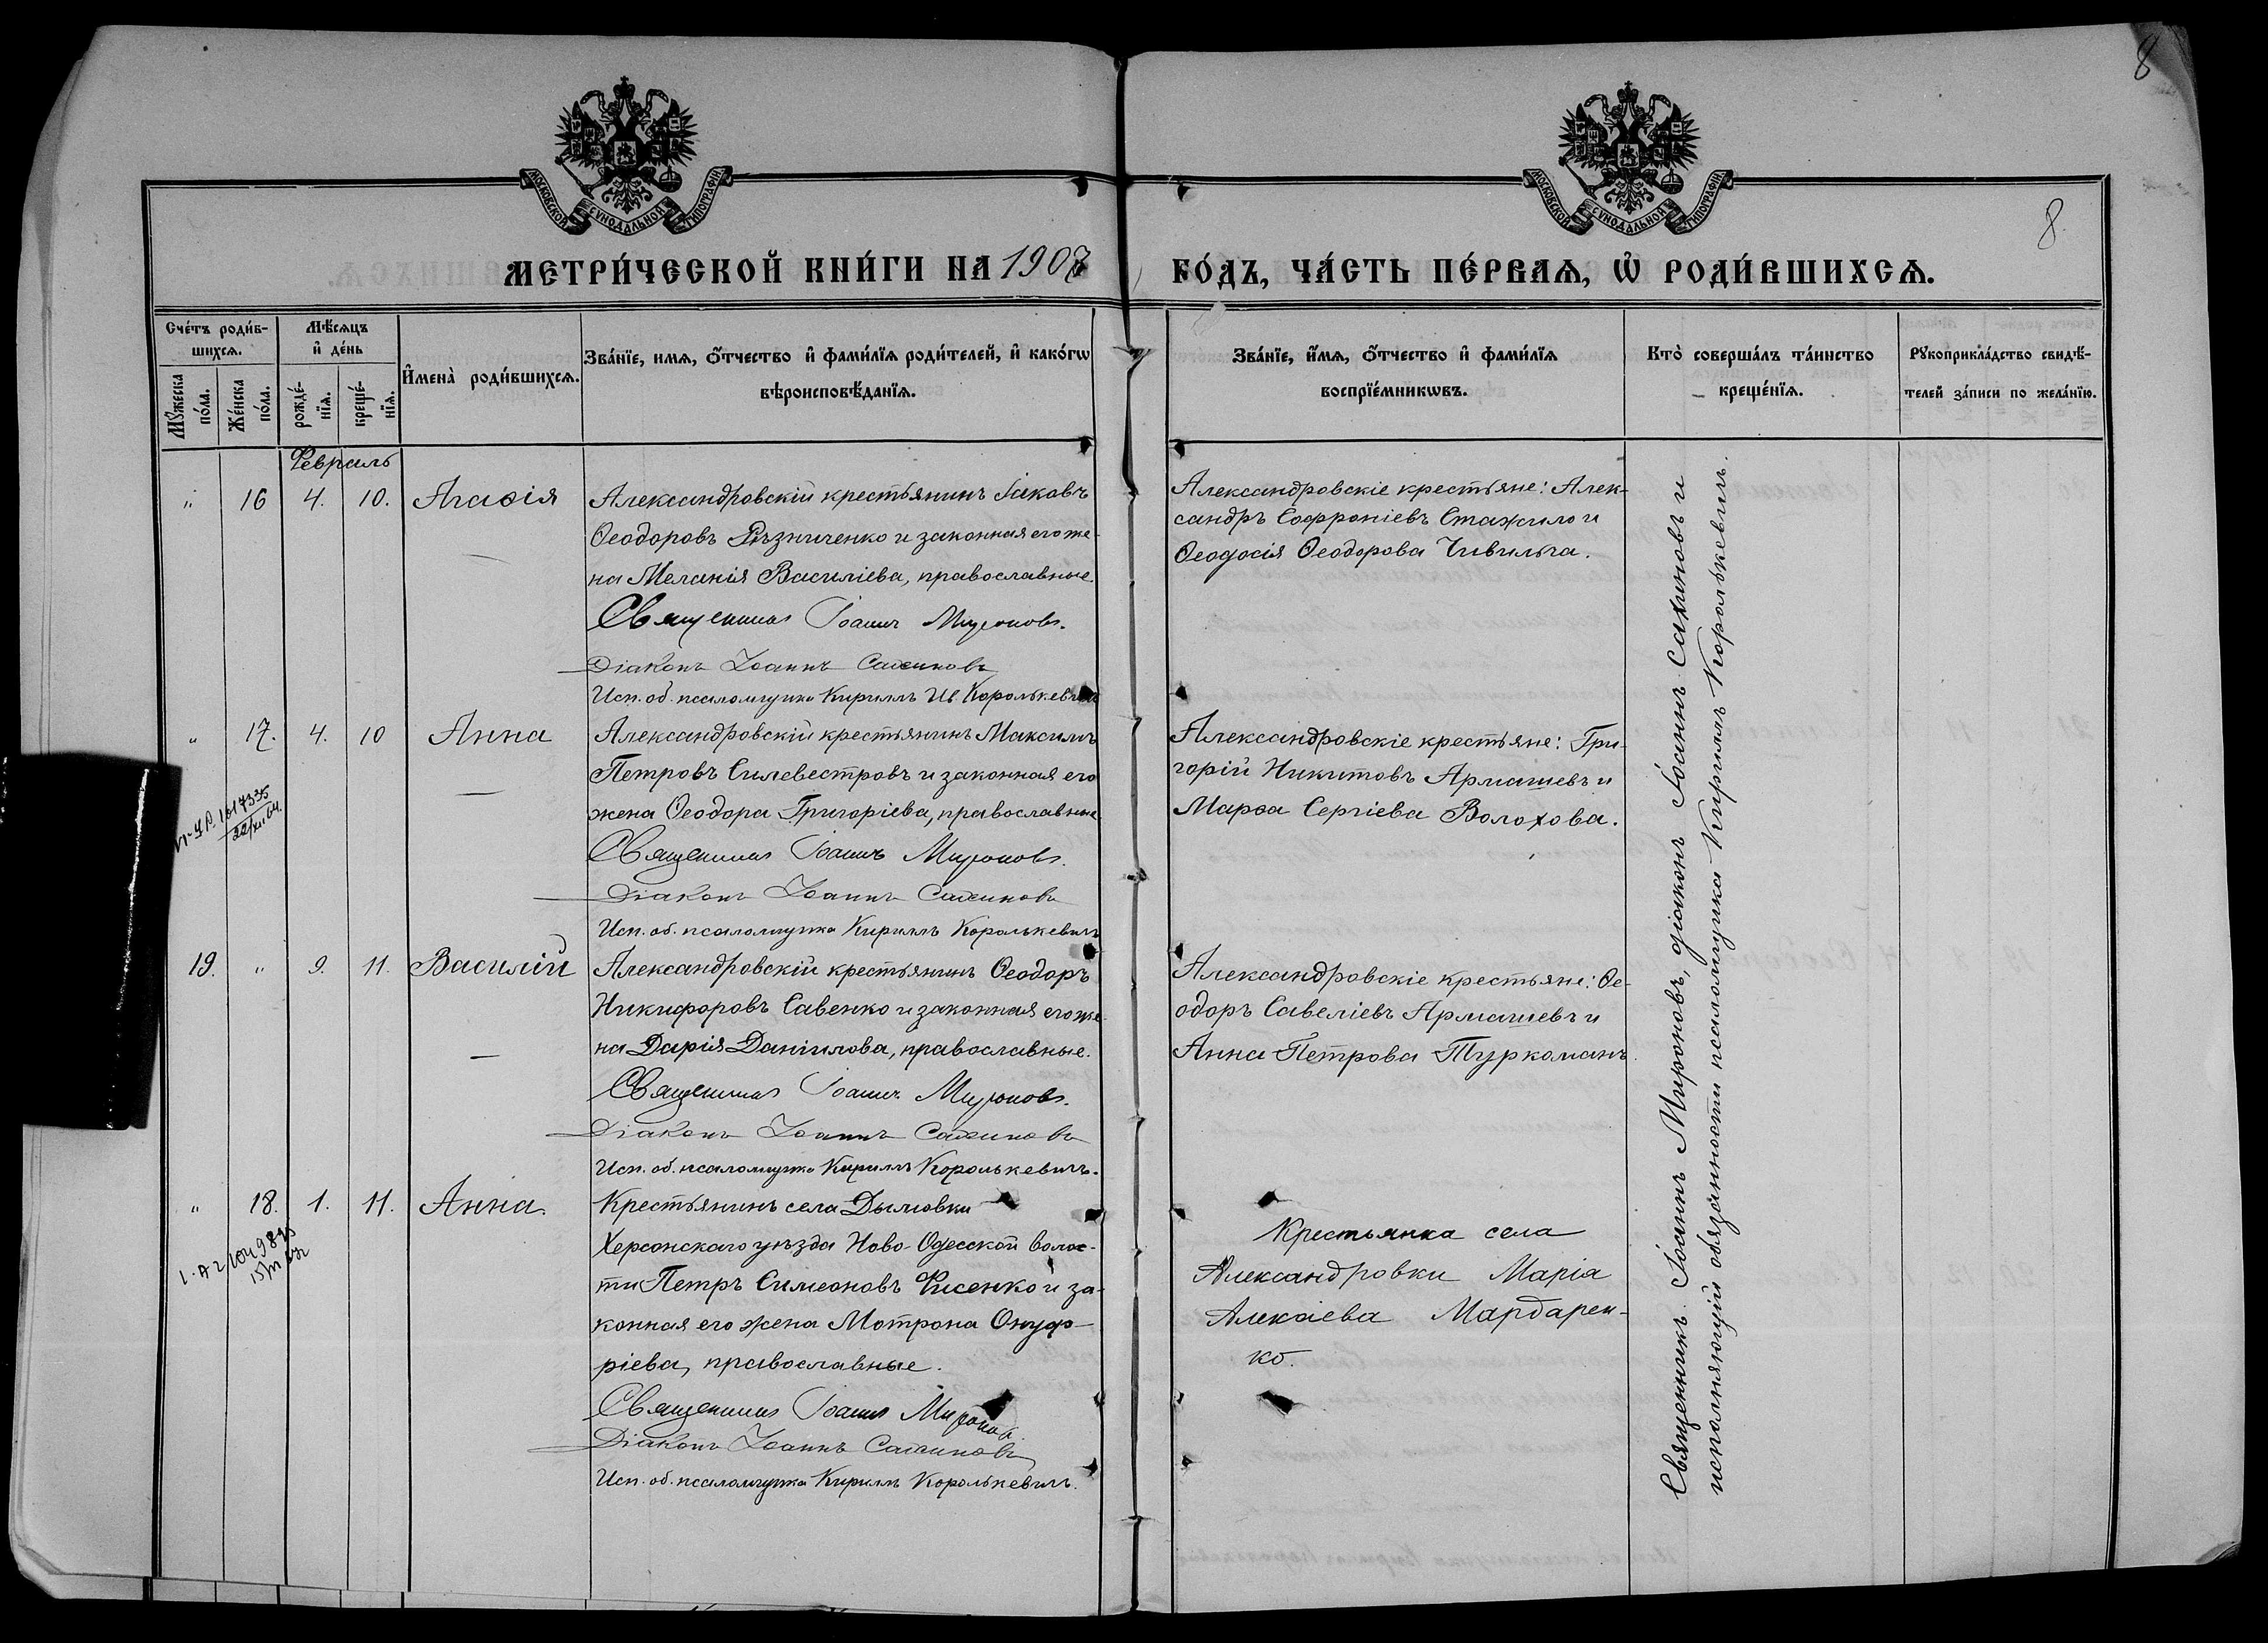 8
МОСКОВСКОЙ СѴНОДАЛЬНОЙ ТИПОГРАФІИ
МОСКОВСКОЙ СѴНОДАЛЬНОЙ ТИПОГРАФІИ
8
МЕТРИ́ЧЕСКОЙ КНИ́ГИ НА 1907
ГО́ДЪ, ЧА́СТЬ ПЕ́РВАѦ, Ѡ РОДИ́ВШИХСѦ.
Сче́тъ роди́в-
шихсѧ.
Мꙋ́жеска
по́ла.
Же́нска
по́ла.
Мѣ́сѧцъ
и҆ де́нь
рожде́-
нїѧ.
креще́-
нїѧ.
И҆мена̀ роди́вшихсѧ.
Зва́нїе, имѧ, ѻ҆́тчество и҆ фами́лїѧ роди́телей, и҆ како́гѡ
вѣроисповѣ́данїѧ.
Зва́нїе, и҆́мѧ, ѻ҆́тчество и҆ фами́лїѧ
воспрїе́мникѡвъ.
Кто̀ соверша́лъ та́инство
креще́нїѧ.
Рꙋкоприкла́дство свидѣ́-
телей за́писи по жела́нїю.
Февраль
" 16 4. 10. Агаѳія
Александровскій крестьянинъ Іаковъ
Ѳеодоровъ Рѣзниченко и законная его же-
на Меланія Василіева, православные.
Священникъ Іоаннъ Мироновъ.
Діаконъ Іоаннъ Сахиновъ
Исп. об. псаломщика Кириллъ Ив. Королькевичъ
Александровскіе крестьяне: Алек-
сандръ Софроніевъ Стажило и
Ѳеодосія Ѳеодорова Чивильга.
" 17. 4. 10 Анна
Александровскій крестьянинъ Максимъ
Петровъ Силевестровъ и законная его
жена Ѳеодора Григоріева, православные
Священникъ Іоаннъ Мироновъ.
Діаконъ Іоаннъ Сахиновъ
Исп. об. псаломщика Кириллъ Королькевичъ
Александровскіе крестьяне: Гри-
горій Никитовъ Армашевъ и
Марѳа Сергіева Волохова.
19. " 9. 11. Василій
Александровскій крестьянинъ Ѳеодоръ
Никифоровъ Савенко и законная его же-
на Дарія Даніилова, православные.
Священникъ Іоаннъ Мироновъ.
Діаконъ Іоаннъ Сахиновъ
Исп. об. псаломщика Кириллъ Королькевичъ.
Александровскіе крестьяне: Ѳе-
одоръ Савеліевъ Армашевъ и
Анна Петрова Туркоманъ
" 18. 1. 11. Анна.
Крестьянинъ села Дымовки
Херсонскаго уѣзда Ново-Одесской волос-
ти Петръ Симеоновъ Фисенко и за-
конная его жена Мотрона Онуф-
ріева, православные.
Священникъ Іоаннъ Мироновъ.
Діаконъ Іоаннъ Сахиновъ
Исп. об. псаломщика Кириллъ Королькевичъ.
Крестьянка села
Александровки Марія
Алексіева Мардарен-
ко.
Священникъ Іоаннъ Мироновъ, діаконъ Іоаннъ Сахиновъ и
исполняющій обязанности псаломщика Кириллъ Королькевичъ.